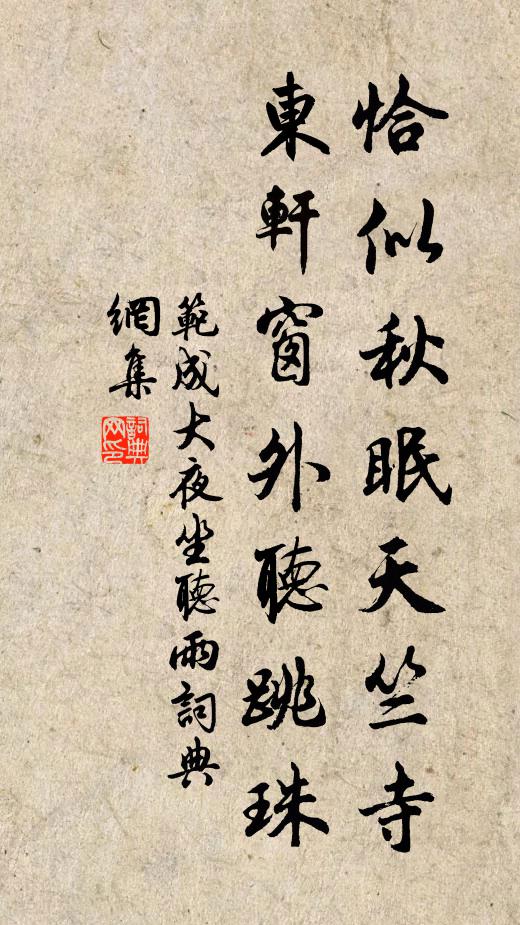 恰似秋眠天竺寺
東軒窗外聽跳珠
範成大夜坐聽雨詞典
網集
詞典
网印